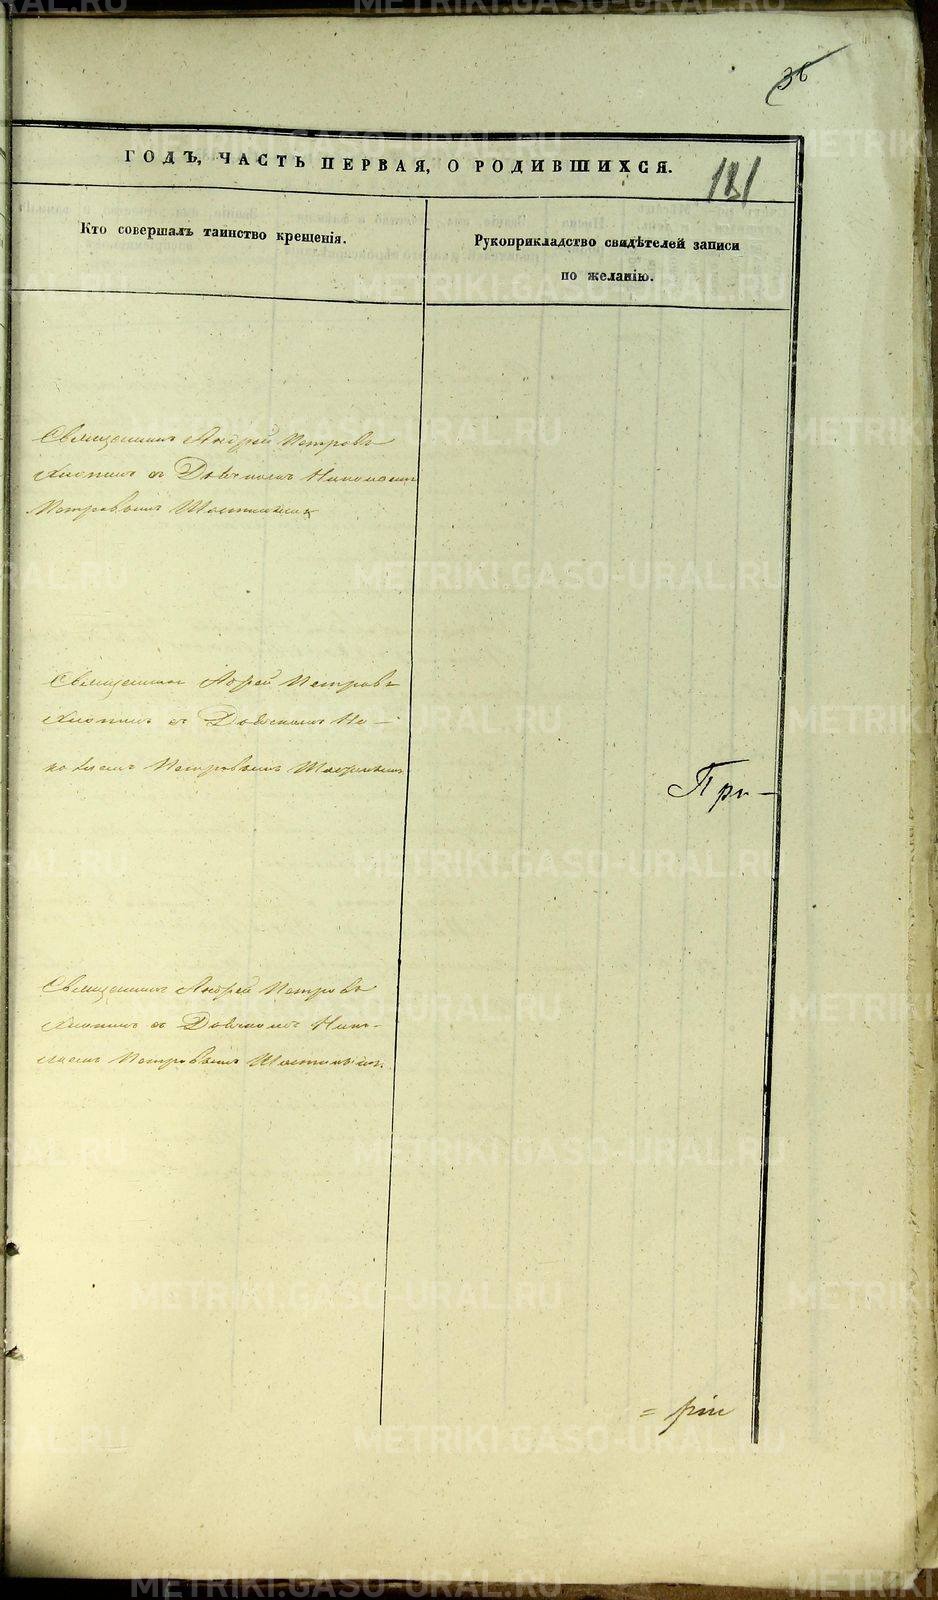 36
ГОДЪ, ЧАСТЬ ПЕРВАЯ, О РОДИВШИХСЯ.
181
Кто совершалъ таинство крещенія.
Рукоприкладство свидѣтелей записи
по желанію.
Священникъ Андрей Петровъ
съ Дьячкомъ Николаемъ
Петровымъ
Священникъ Андрей Петровъ
съ Дьячкомъ Ни-
колаемъ Петровымъ
При-
Священникъ Андрей Петровъ
съ Дьячкомъ Нико-
лаемъ Петровымъ
METRIKI.GASO-URAL.RU